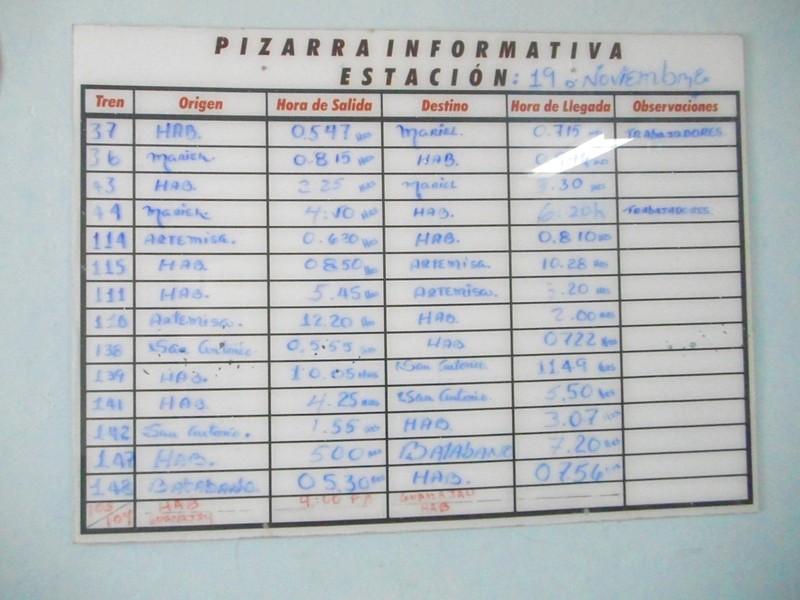 PIZARRA INFORMATIVA
ESTACIÓN: 19 Noviembre
Tren Origen Hora de Salida Destino Hora de Llegada Observaciones
37 HAB. 0.547 HRS MARIEL 0.715 TRABAJADORES
36 MARIEL 0.815 HRS HAB.
43 HAB. 2.25 HRS MARIEL 3.30 HRS
44 MARIEL 4:50 HRS HAB. 6.20h TRABAJADORES
114 ARTEMISA. 0.630 HRS HAB. 0.810 HRS
115 HAB 0850 HRS ARTEMISA. 10.28 HRS
111 HAB. 5.45 HRS ARTEMISA. .20 HRS
ARTEMISA. 12.20 HRS HAB. 2.00 HRS
138 San Antonio 0.5.55 HRS HAB 0722 HRS
139 HAB. 10.05 HRS San Antonio 1149 HRS
141 HAB. 4.25 HRS San Antonio. 5.50 HRS
142 San Antonio. 1.55 HRS HAB. 3.07 HRS
147 HAB. 500 HRS BATABANO 7.20 HRS
148 BATABANO. 05.30 HRS HAB. 0756
103 HAB 4:00 PM GUANAJAY
104 GUANAJAY HAB